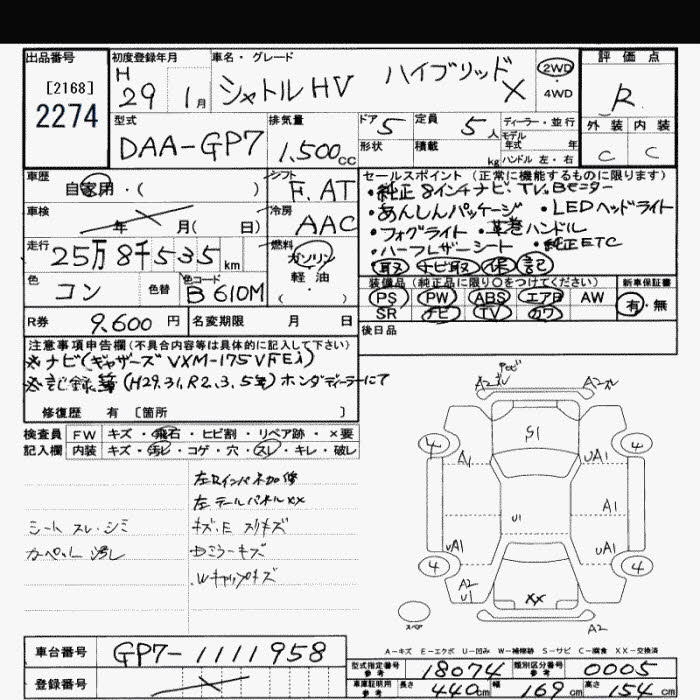 出品番号
[2168]
2274
初度登録年月
H 29 1月
車名・グレード
シャトルHV ハイブリッドX
2WD・4WD
評価点
R
外装 内装
C C
型式
DAA-GP7
排気量
1.500cc
ドア 5
形状
定員 5人
積載 kg
ディーラー・並行
モデル年式 年
ハンドル 左・右
車歴
自家用・( )
シフト
F.AT
車検
年 月( 日)
冷房
AAC
走行
25万8千535km
燃料
ガソリン
軽油
・( )
色
コン
色替
色コード
B610M
セールスポイント(正常に機能するものに限ります)
・純正8インチナビ TV.Bモニター
・あんしんパッケージ ・LEDヘッドライト
・フォグライト ・革巻ハンドル
・ハーフレザーシート ・純正ETC
取 ナビ取 保 記
装備品(純正品に限り○をつけてください)
PS PW ABS エアB AW
SR ナビ TV カワ
新車保証書
有・無
R券 9.600円
名変期限 月 日
後日品
注意事項申告欄(不具合内容等は具体的に記入して下さい)
※ナビ(ギャザーズ VXM-175VFEi)
※記録簿(H29.31,R2.3.5年)ホンダディーラーにて
修復歴 有 〔箇所 〕
検査員記入欄
FW キズ・飛石・ヒビ割・リペア跡・×要
内装 キズ・汚レ・コゲ・穴・スレ・キレ・破レ
左Rインパネ加修
左テールパネルXX
シート スレ・シミ
キズ.E スリキズ
カーペット 汚レ
Dミラーキズ
.Wキャップキズ
A2 A2
S1
4 4
A1 UA1
U1 A1
UA1 UA1
4 4
A2
U1
XX
A2
スペア
A-キズ E-エクボ U-凹み W-補修跡 S-サビ C-腐食 XX-交換済
車台番号
GP7-1111958
登録番号
型式指定番号 参考
18074
類別区分番号 参考
0005
車庫証明用 参考
長さ 440cm
幅 169cm
高さ 154cm